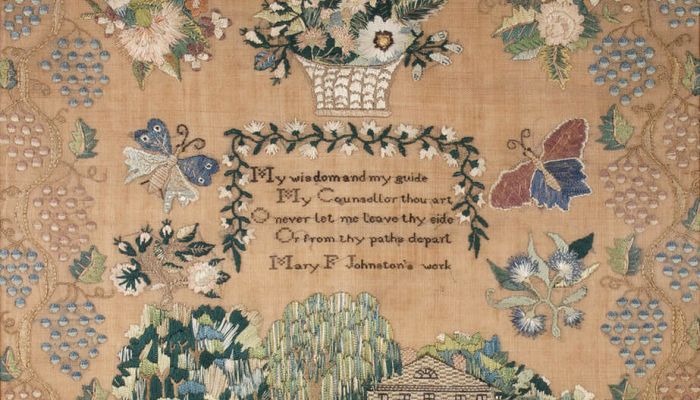 My wisdom and my guide
My Counsellor thou art
O never let me leave thy side
Or from thy paths depart
Mary F Johnston's work